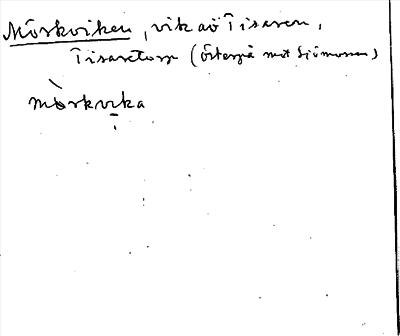 Mörkviken, vik av Tisaren,
Tisartorp (österpå mot Sjömossen)
mòrkvika